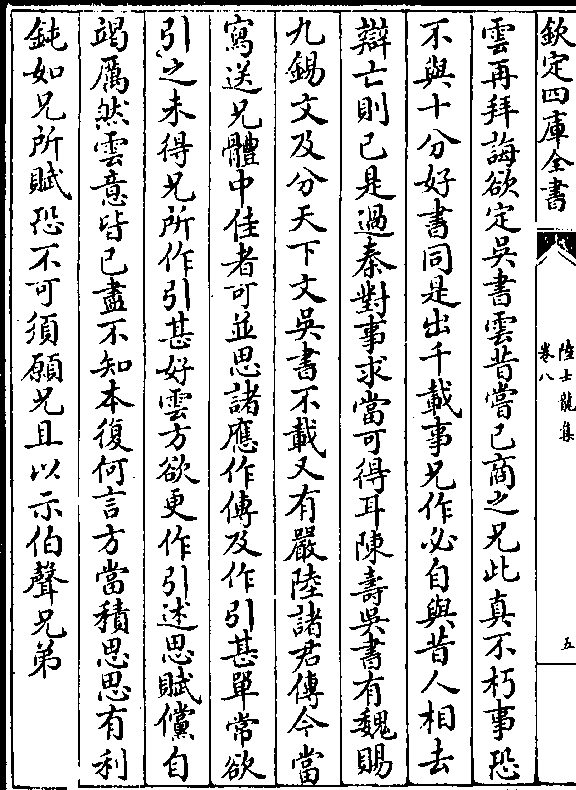 欽定四庫全書
陸士龍集
卷八
五
雲再拜誨欲定吳書雲昔嘗已商之兄此真不朽事恐
不與十分好書同是出千載事兄作必自與昔人相去
辯亡則已是過秦對事求當可得耳陳壽吳書有魏賜
九錫文及分天下文吳書不載又有嚴陸諸君傳今當
寫送兄體中佳者可並思諸應作傳及作引甚單常欲
引之未得兄所作引甚好雲方欲更作引述思賦儻自
竭厲然雲意皆已盡不知本復何言方當積思思有利
鈍如兄所賦恐不可須願兄且以示伯聲兄弟